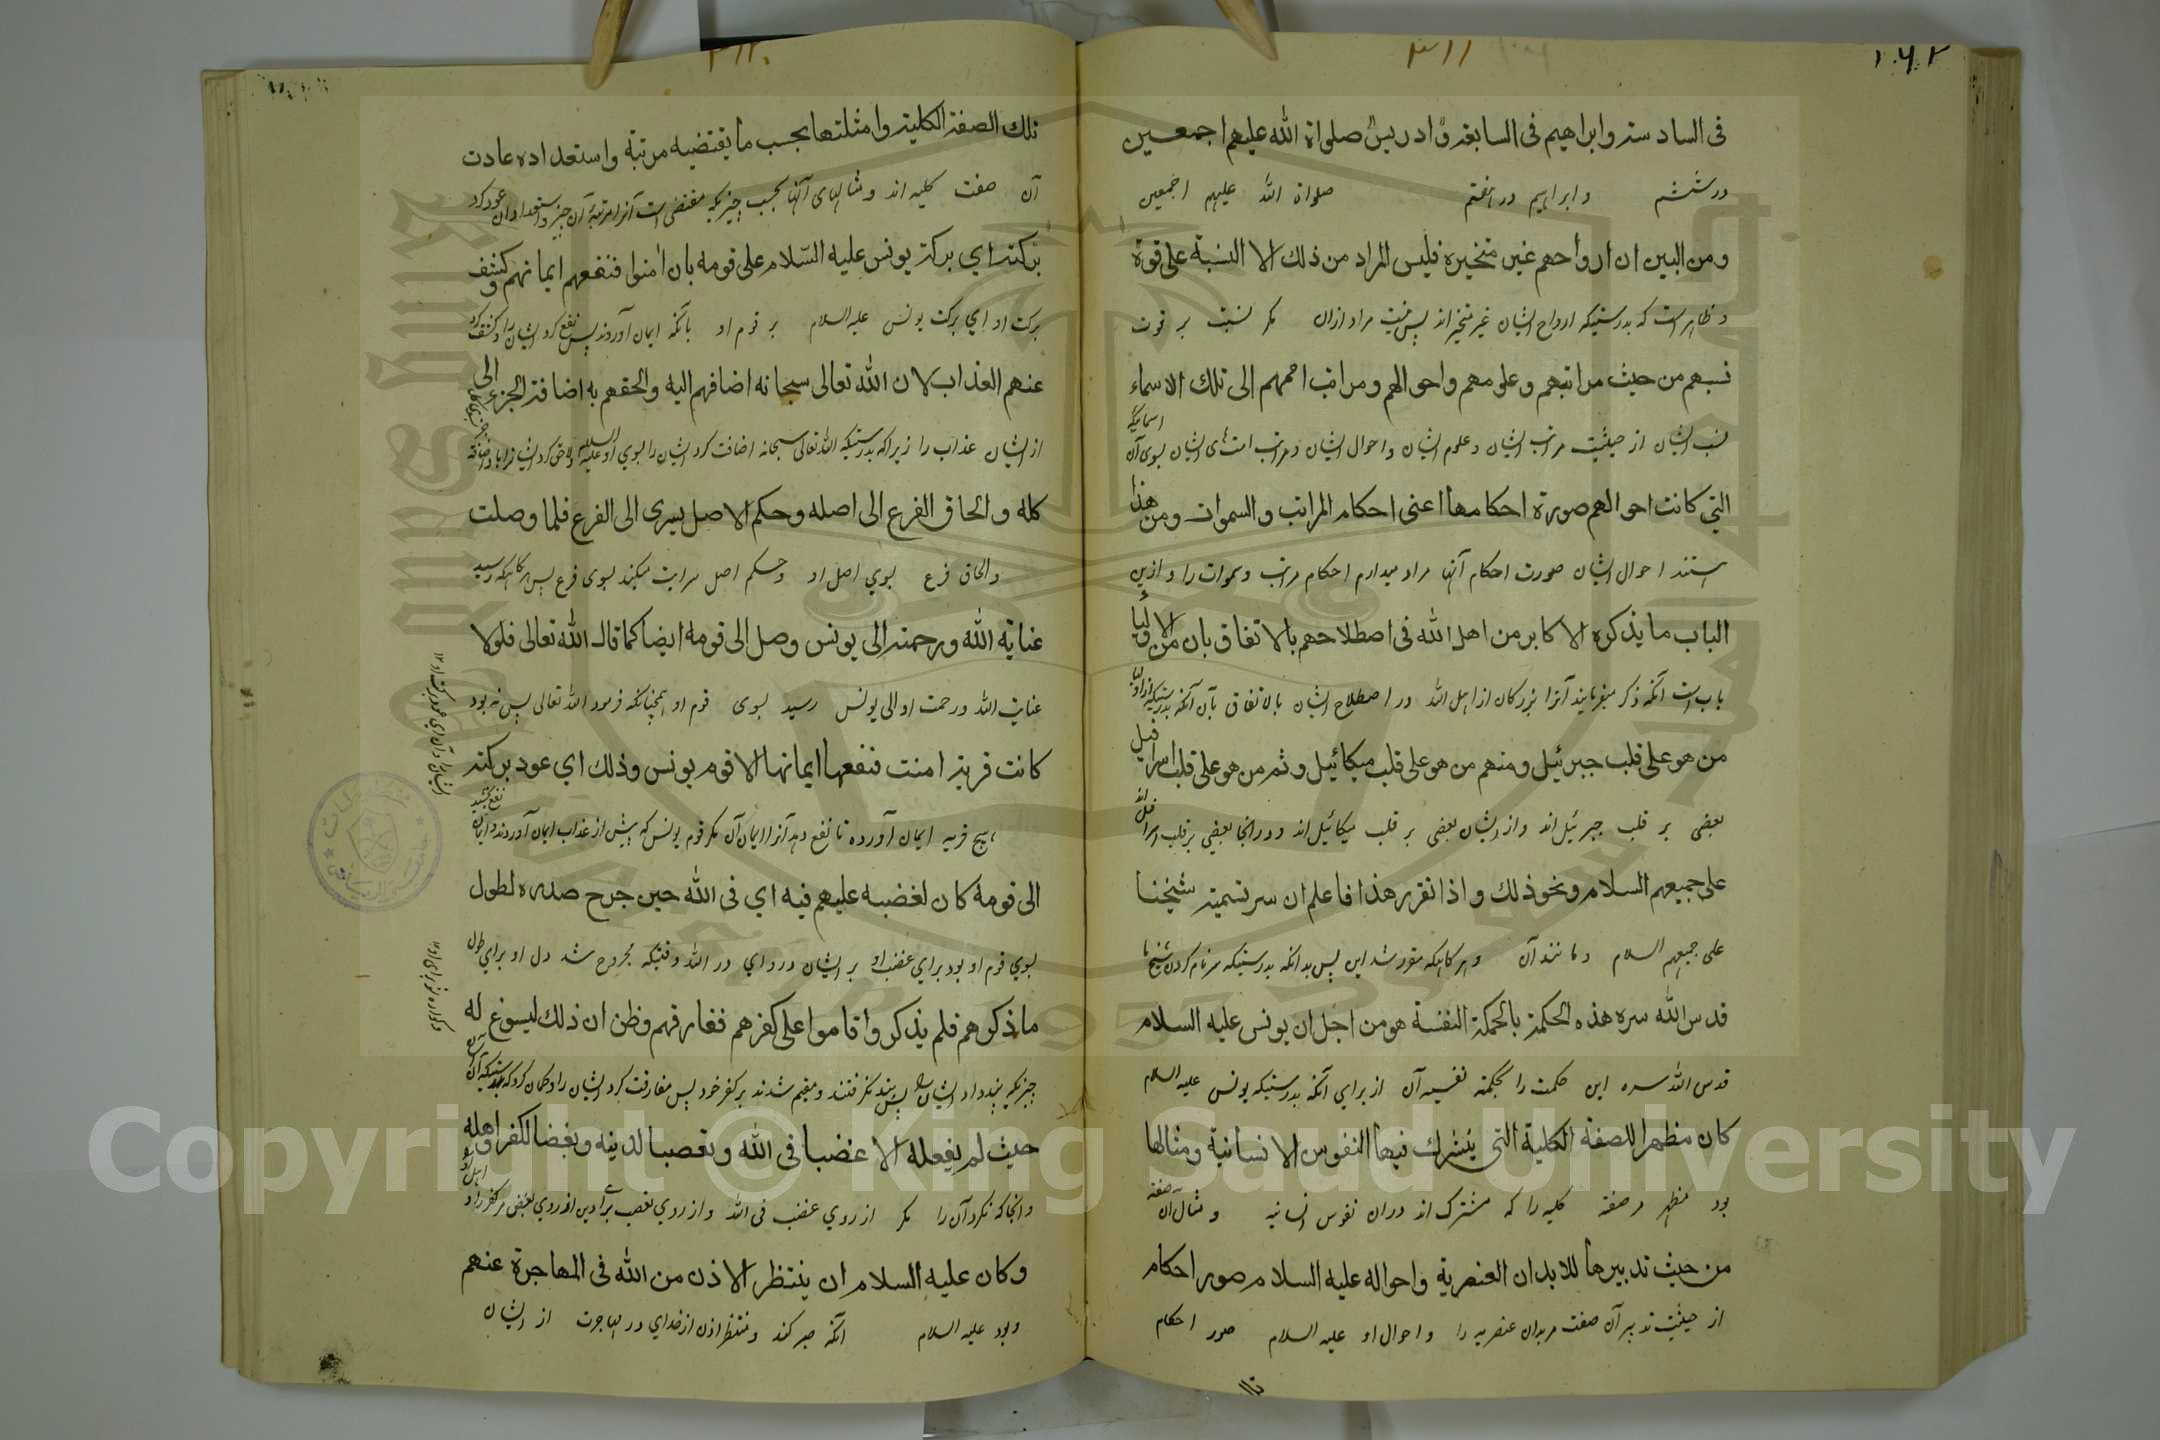 ٣١١
١٦٢
فى السادسة وابراهيم فى السابغة وادريس صلواة الله عليهم اجمعين
در ششم و ابراهيم در هفتم صلواة الله عليهم اجمعين
ومن البين ان ارواحهم غير متخيره فليس المراد من ذلك الا النسبة على قوة
و ظاهر است كه بدرستيكه ارواح ايشان غير متخير اند پس نيست مراد ازان مگر نسبت بر قوت
نسبهم من حيث مراتبهم وعلومهم واحوالهم ومراتب اممهم الى تلك الاسماء
نسب ايشان از حيثيت مراتب ايشان و علوم ايشان و احوال ايشان و مراتب امت هاى ايشان بسوى آن اسمائيكه
التي كانت احوالهم صورة احكامها اعنى احكام المراتب والسموات ومن هذا
هستند احوال ايشان صورت احكام آنها مراد ميدارم احكام مراتب وسموات را و ازين
الباب ما يذكره الاكابر من اهل الله فى اصطلاحهم بالاتفاق بان من الاولياء
باب است آنكه ذكر ميفرمايند آنرا بزرگان از اهل الله در اصطلاح ايشان بالاتفاق بآن آنكه بدرستيكه از اوليا
من هو على قلب جبرئيل ومنهم من هو على قلب ميكائيل وثم من هو على قلب اسرافيل
بعضى بر قلب جبرئيل اند و از ايشان بعضى بر قلب ميكائيل اند و در انجا بعضي بر قلب اسرافيل اند
على جميعهم السلام ونحو ذلك واذا تقرر هذا فاعلم ان سر تسمية شيخنا
على جميعهم السلام و مانند آن و هرگاهيكه مقرر شد اين پس بدانكه بدرستيكه سر نام كردن شيخ ما
قدس الله سره هذه الحكمة بالحكمة النفسة هو من اجل ان يونس عليه السلام
قدس الله سره اين حكمت را بحكمة نفسيه آن از براي آنكه بدرستيكه يونس عليه السلام
كان مظهرا للصفة الكلية التى يشترك فيها النفوس الانسانية ومثالها
بود مظهر مر صفة كليه را كه مشترك اند دران نفوس انسانيه و مثال آن صفة
من حيث تدبيرها للابدان العنصرية واحواله عليه السلام صور احكام
از حيثيت تدبير آن صفت مر بدان عنصريه را و احوال او عليه السلام صور احكام
تلك
٣١٢
تلك الصفة الكلية وامثلتها بحسب ما يقتضيه مرتبة واستعداده عادت
آن صفت كليه اند و مثالهاى آنها بحسب چيزيكه مقتضى است آنرا مرتبه آن چيز و استعداد ان عود كرد
بركته اي بركة يونس عليه السلام على قومه بان امنوا فنفعهم ايمانهم وكشف
بركت او اي بركت يونس عليه السلام بر قوم او بآنكه ايمان آوردند پس نفع كرد ايشان را و كشف كرد
عنهم العذاب لان الله تعالى سبحانه اضافهم اليه والحقهم به اضافة الجزء الى
از ايشان عذاب را زيراكه بدرستيكه الله تعالى سبحانه اضافت كرد ايشان را بسوي او عليه السلام و لاحق كرد ايشان را باو
كله والحاق الفرع الى اصله وحكم الاصل يسرى الى الفرع فلما وصلت
والحاق فرع بسوي اصل او و حكم اصل سرايت ميكند بسوى فرع پس هرگاهيكه رسيد
عناية الله ورحمته الى يونس وصل الى قومه ايضا كما قال الله تعالى فلولا
عنايت الله و رحمت او الى يونس رسيد بسوى قوم او همچنانكه فرمود الله تعالى پس نه بود
كانت قرية امنت فنفعها ايمانها الا قوم يونس وذلك اي عود بركته
هيچ قريه ايمان آورده تا نفع دهد آنرا ايمان آن مگر قوم يونس كه پيش از عذاب ايمان آوردند و ايمان نفع بخشيد
الى قومه كان لغضبه عليهم فيه اي فى الله حين جرح صدره لطول
بسوي قوم او بود براي غضب او بر ايشان در و اي در الله وقتيكه مجروح شد دل او براي طول
ما ذكرهم فلم يذكروا واقاموا على كفرهم ففارقهم وظن ان ذلك ليسوغ له
چيزيكه پند داد ايشان را پس پند نگرفتند و مقيم شدند بر كفر خود پس مفارقت كرد ايشان را و گمان كرد كه بدرستيكه آن
حيث لم يفعله الا غضبا فى الله وتعصبا لدينه وبغضا للكفر واهله
و انجا كه نكرد آن را مگر از روي غضب فى الله و از روي تعصب براي دين او و از روي بغض مر كفر را و اهل او
وكان عليه السلام ان ينتظر الاذن من الله فى المهاجرة عنهم
و بود عليه السلام آنكه صبر كند و منتظر اذن از خداي در مهاجرت از ايشان
Copyright © King Saud University